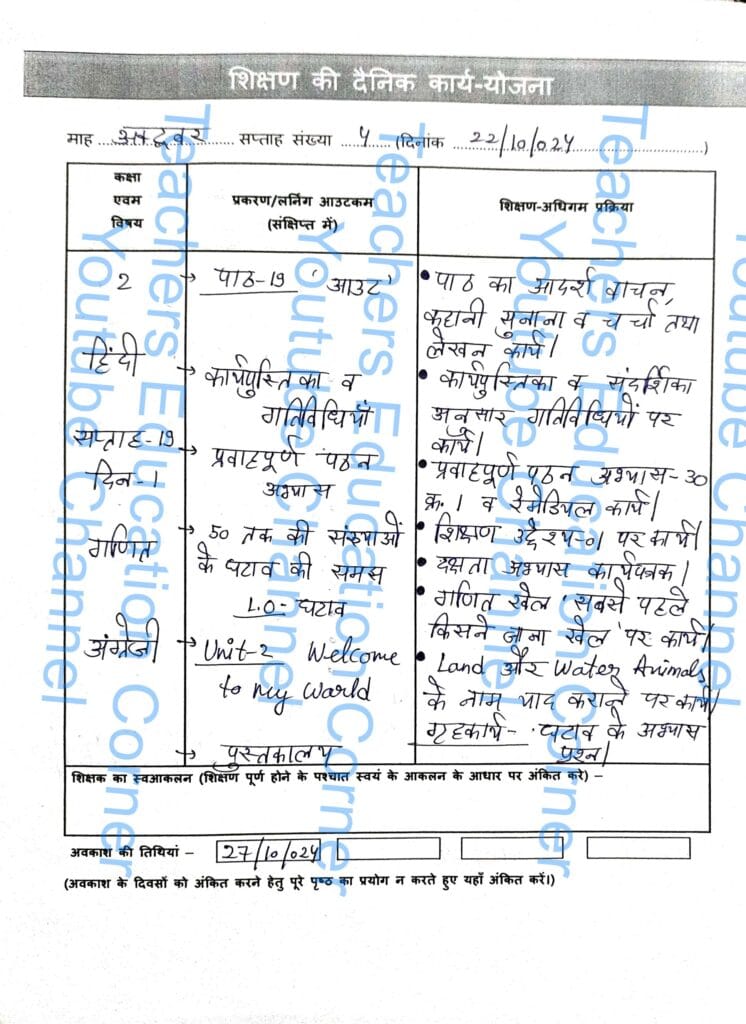 शिक्षण की दैनिक कार्य-योजना
माह अक्टूबर सप्ताह संख्या 4 (दिनांक 22/10/024)
कक्षा
एवम
विषय
प्रकरण/लर्निंग आउटकम
(संक्षिप्त में)
शिक्षण-अधिगम प्रक्रिया
2
हिंदी
सप्ताह-19
दिन-1
गणित
अंग्रेजी
→ पाठ-19 'आउट'
→ कार्यपुस्तिका व
गतिविधियाँ
→ प्रवाहपूर्ण पठन
अभ्यास
→ 50 तक की संख्याओं
के घटाव की समझ
L.O- घटाव
→ Unit-2 Welcome
to my world
→ पुस्तकालय
• पाठ का आदर्श वाचन,
कहानी सुनाना व चर्चा तथा
लेखन कार्य।
• कार्यपुस्तिका व संदर्शिका
अनुसार गतिविधियों पर
कार्य।
• प्रवाहपूर्ण पठन अभ्यास-30
क्र. 1 व रेमेडियल कार्य।
• शिक्षण उद्देश्य-01 पर कार्य।
• दक्षता अभ्यास कार्यपत्रक।
• गणित खेल 'सबसे पहले
किसने जाना खेल' पर कार्य।
• Land और Water Animals
के नाम याद कराने पर कार्य।
गृहकार्य- घटाव के अभ्यास
प्रश्न।
शिक्षक का स्वआकलन (शिक्षण पूर्ण होने के पश्चात स्वयं के आकलन के आधार पर अंकित करे) –
अवकाश की तिथियां - 27/10/024
(अवकाश के दिवसों को अंकित करने हेतु पूरे पृष्ठ का प्रयोग न करते हुए यहाँ अंकित करें।)
Teachers Education Corner
Youtube Channel
Teachers Education Corner
Youtube Channel
Teachers Education Corner
Youtube Channel